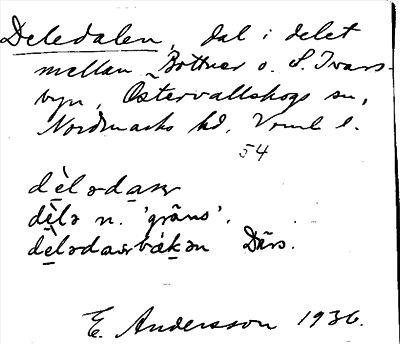 Deledalen, dal i delet
mellan Bottner o. S. Ivars-
byn, Östervallskogs sn,
Nordmarks hd, Vrml l.
54
dèləda
dèlə n. 'gräns'.
Därs.
E. Andersson 1936.